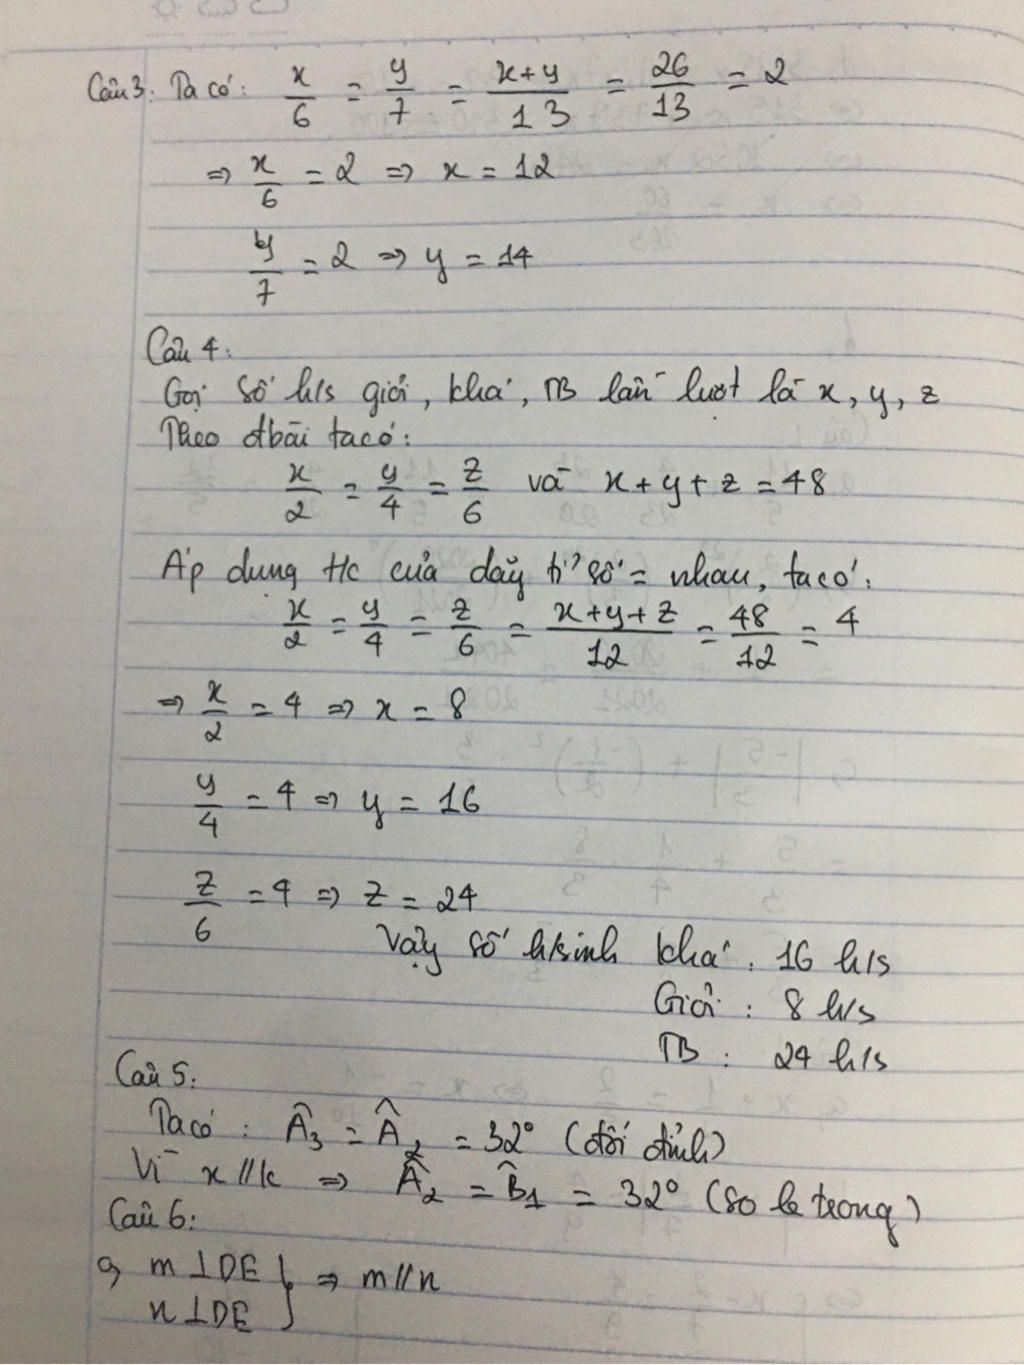 Câu 3: Ta có: x/6 = y/7 = x+y/13 = 26/13 = 2
⇒ x/6 = 2 ⇒ x = 12
y/7 = 2 ⇒ y = 14
Câu 4:
Gọi số h/s giỏi, khá, TB lần lượt là x, y, z
Theo đbài ta có:
x/2 = y/4 = z/6 và x + y + z = 48
Áp dụng t/c của dãy tỉ số = nhau, ta có:
x/2 = y/4 = z/6 = x+y+z/12 = 48/12 = 4
⇒ x/2 = 4 ⇒ x = 8
y/4 = 4 ⇒ y = 16
z/6 = 4 ⇒ z = 24
Vậy số h/sinh khá: 16 h/s
Giỏi: 8 h/s
TB: 24 h/s
Câu 5:
Ta có: Â₃ = Â₂ = 32° (đối đỉnh)
Vì x//k ⇒ Â₂ = B̂₁ = 32° (so le trong)
Câu 6:
a, m ⊥ DE } ⇒ m//n
n ⊥ DE